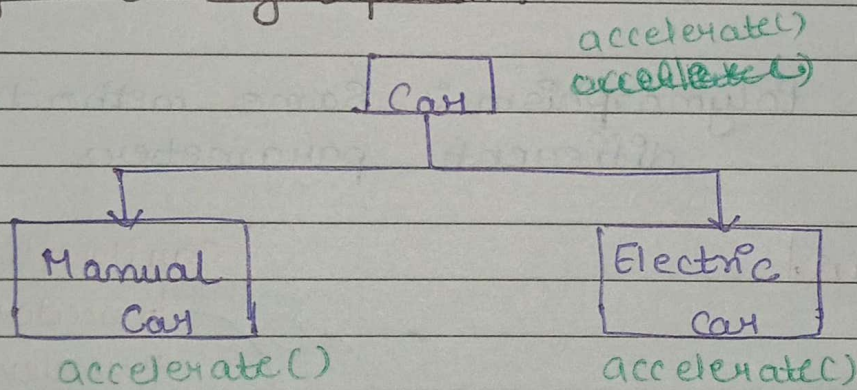 accelerate()
Car
Manual
Car
Electric
Car
accelerate()
accelerate()